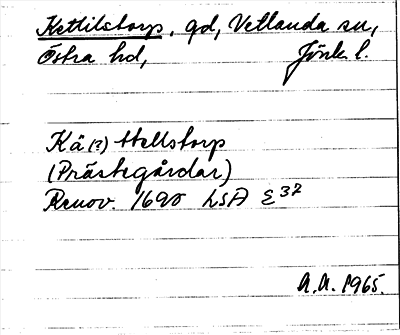 Ketlilstorp, gd, Vetlanda sn,
Östra hd, Jönk. l.
Kä(?)ttellstorp
(Prästegårdar)
Renov. 1690 LSA E 37
A.A. 1965.